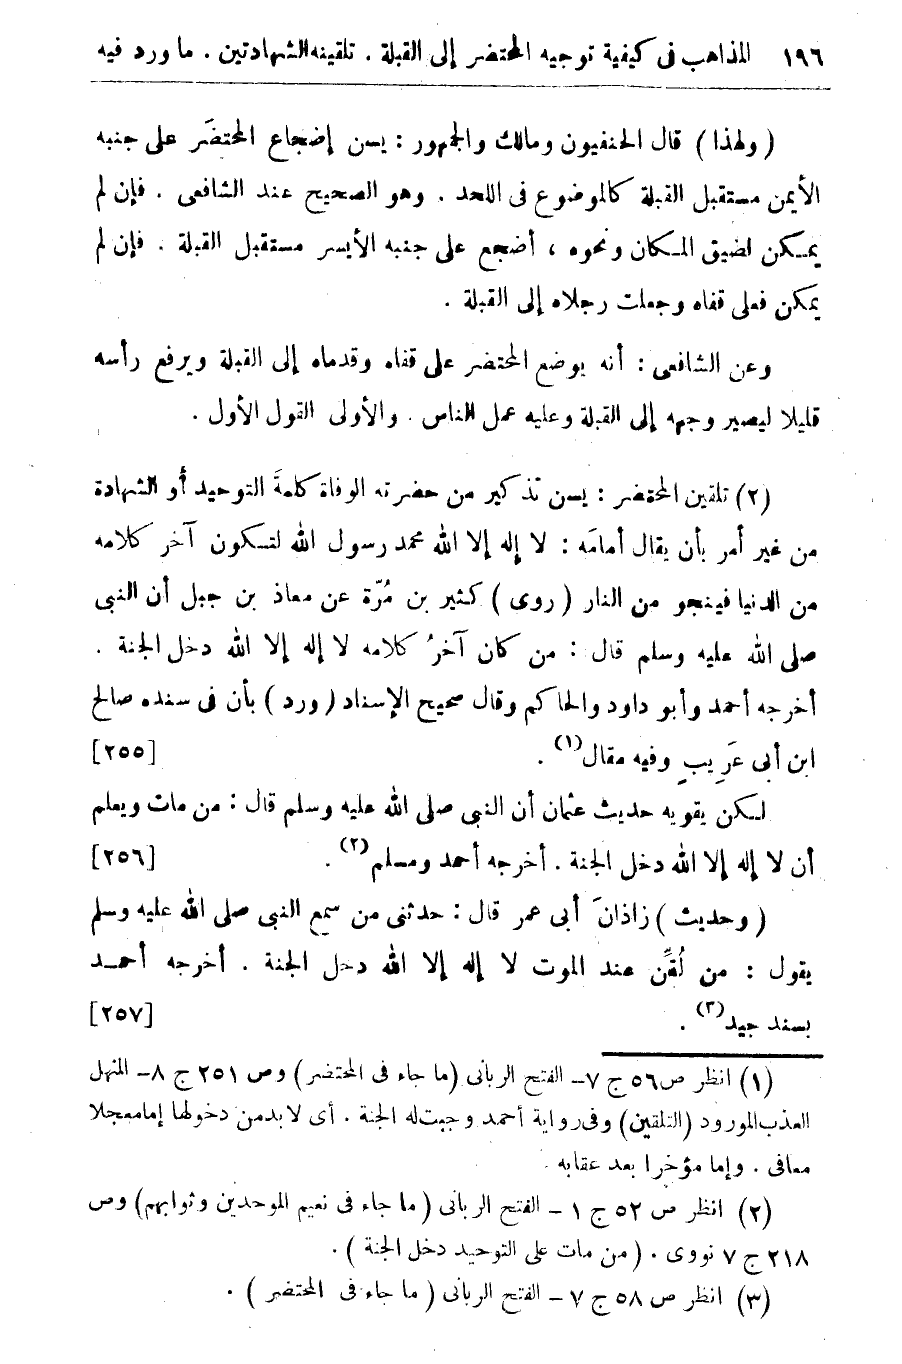 ١٩٦ المذاهب فى كيفية توجيه المحتضر إلى القبلة . تلقينه الشهادتين . ما ورد فيه
( ولهذا ) قال الحنفيون ومالك والجمهور : يسن إضجاع المحتضَر على جنبه
الأيمن مستقبل القبلة كالموضوع فى اللحد . وهو الصحيح عند الشافعى . فإن لم
يمكن لضيق المكان ونحوه ، أضجع على جنبه الأيسر مستقبل القبلة . فإن لم
يمكن فعلى قفاه وجعلت رجلاه إلى القبلة .
وعن الشافعى : أنه يوضع المحتضر على قفاه وقدماه إلى القبلة ويرفع رأسه
قليلا ليصير وجهه إلى القبلة وعليه عمل الناس . والأولى القول الأول .
(٢) تلقين المحتضر : يسن تذكير من حضرته الوفاة كلمةَ التوحيد أو الشهادة
من غير أمر بأن يقال أمامَه : لا إله إلا الله محمد رسول الله لتكون آخر كلامه
من الدنيا فينجو من النار ( روى ) كثير بن مُرّة عن معاذ بن جبل أن النبى
صلى الله عليه وسلم قال : من كان آخرُ كلامه لا إله إلا الله دخل الجنة .
أخرجه أحمد وأبو داود والحاكم وقال صحيح الإسناد ( ورد ) بأن فى سنده صالح
ابن أبى عَرِيبٍ وفيه مقال(١) . [٢٥٥]
لكن يقويه حديث عثمان أن النبى صلى الله عليه وسلم قال : من مات ويعلم
أن لا إله إلا الله دخل الجنة . أخرجه أحمد ومسلم(٢) . [٢٥٦]
( وحديث ) زاذانَ أبى عمر قال : حدثنى من سمع النبى صلى الله عليه وسلم
يقول : من لُقِّن عند الموت لا إله إلا الله دخل الجنة . أخرجه أحمد
بسند جيد(٣) . [٢٥٧]
(١) انظر ص ٥٦ ج ٧ – الفتح الربانى (ما جاء فى المحتضر) وص ٢٥١ ج ٨ – المنهل
العذب المورود (التلقين) وفى رواية أحمد وجبت له الجنة . أى لا بد من دخولها إما معجلا
معافى . وإما مؤخرا بعد عقابه .
(٢) انظر ص ٥٢ ج ١ – الفتح الربانى ( ما جاء فى نعيم الموحدين وثوابهم) وص
٢١٨ ج ٧ نووى . ( من مات على التوحيد دخل الجنة ) .
(٣) انظر ص ٥٨ ج ٧ – الفتح الربانى ( ما جاء فى المحتضر ) .